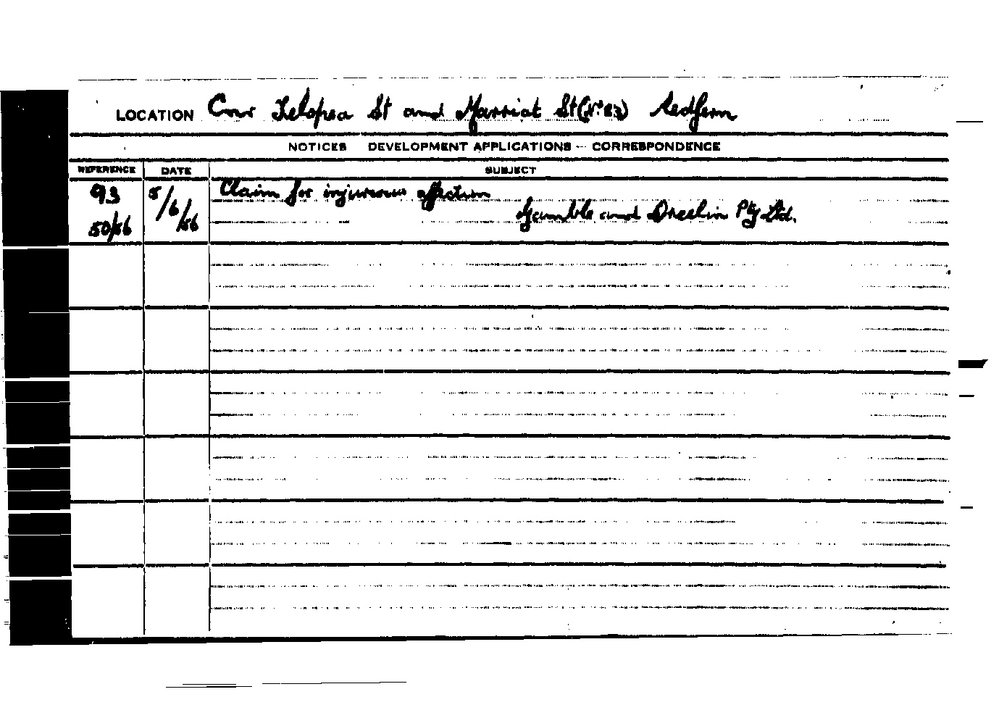 LOCATION Cnr Telopea St and Marriot St (No 83) Redfern
NOTICES DEVELOPMENT APPLICATIONS - CORRESPONDENCE
REFERENCE DATE SUBJECT
93 5/6/56 Claim for injurious affection
50/56 Gamble and Breelin Pty Ltd.